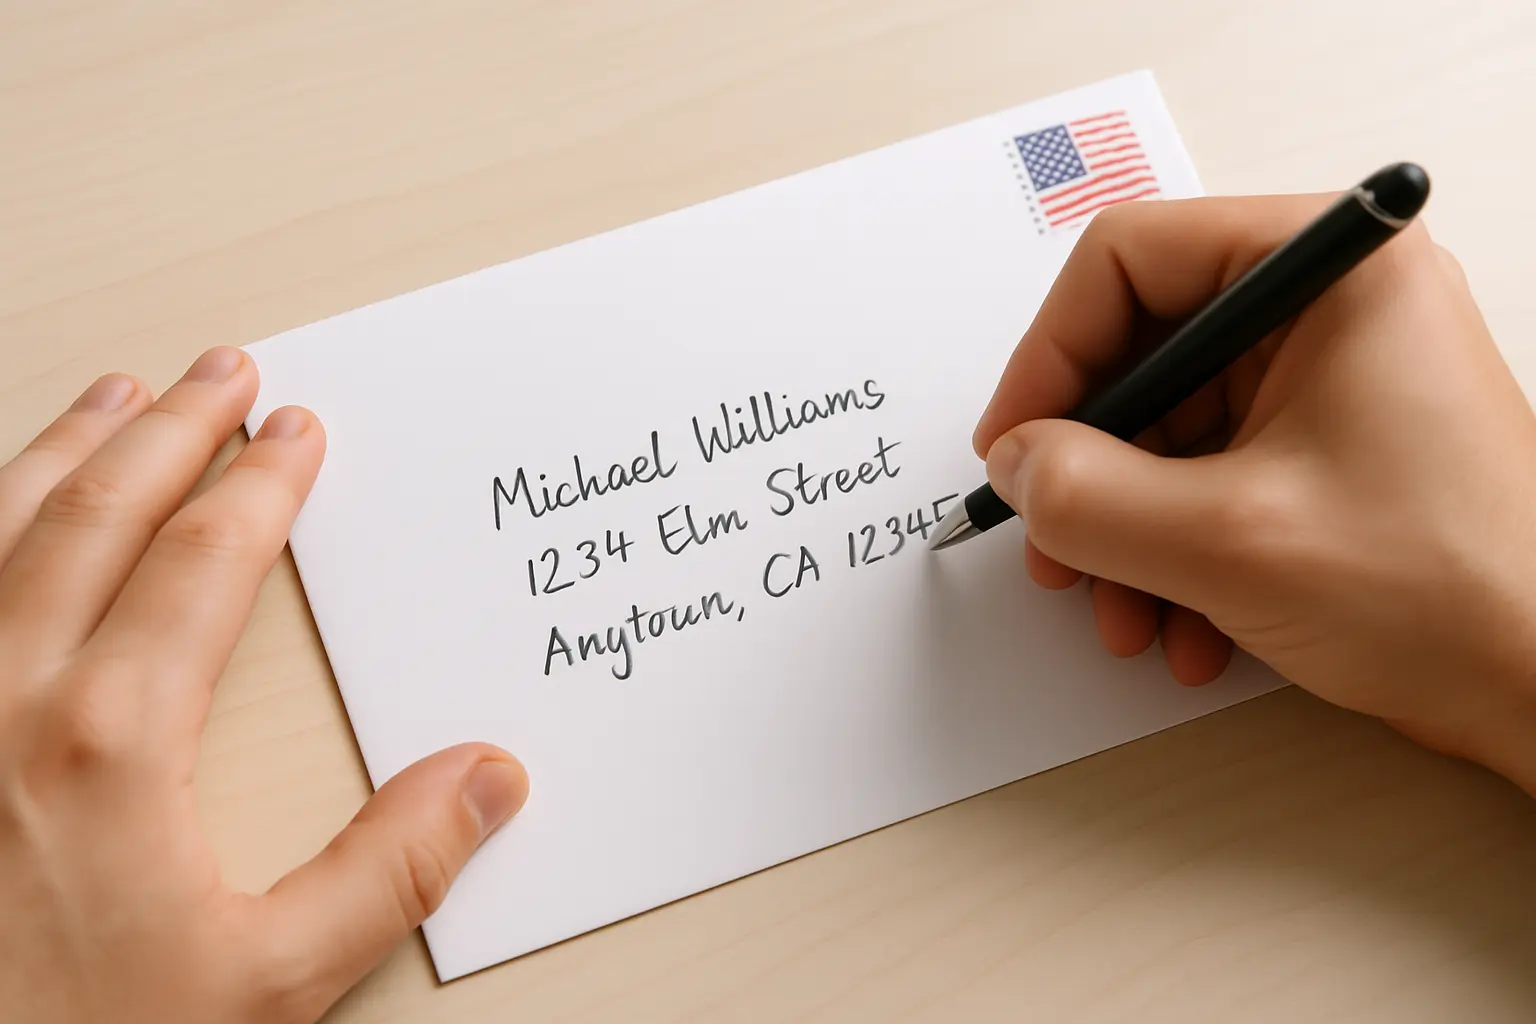 Michael Williams
1234 Elm Street
Anytoun, CA 12345